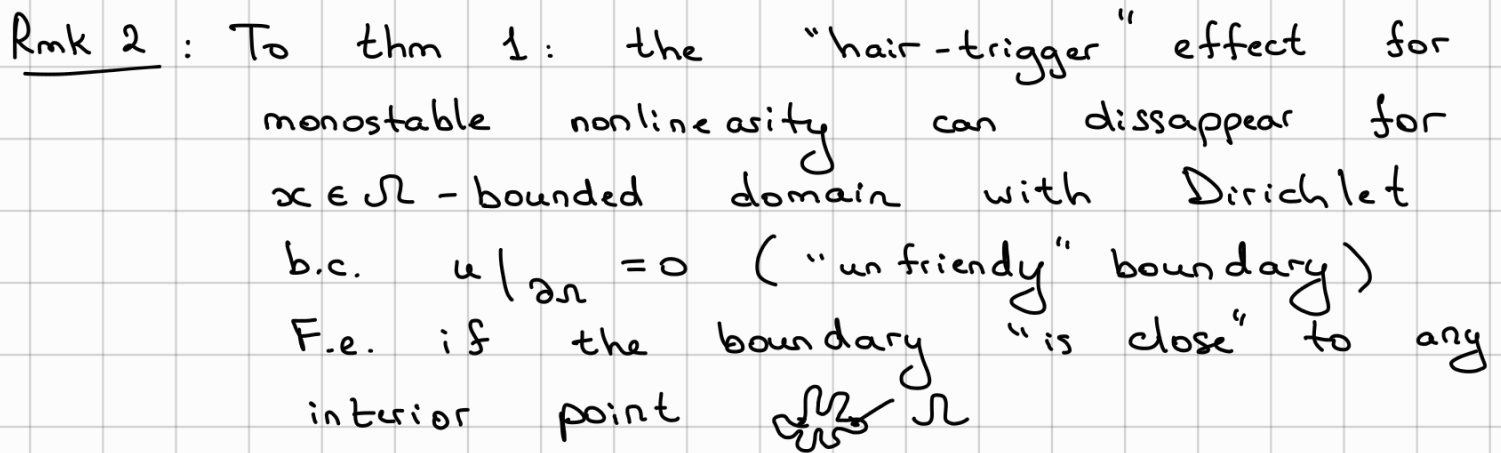 Rmk 2 : To thm 1: the "hair-trigger" effect for
monostable nonlinearity can dissappear for
x ∈ Ω - bounded domain with Dirichlet
b.c. u|∂Ω = 0 ("unfriendy" boundary)
F.e. if the boundary "is close" to any
interior point Ω